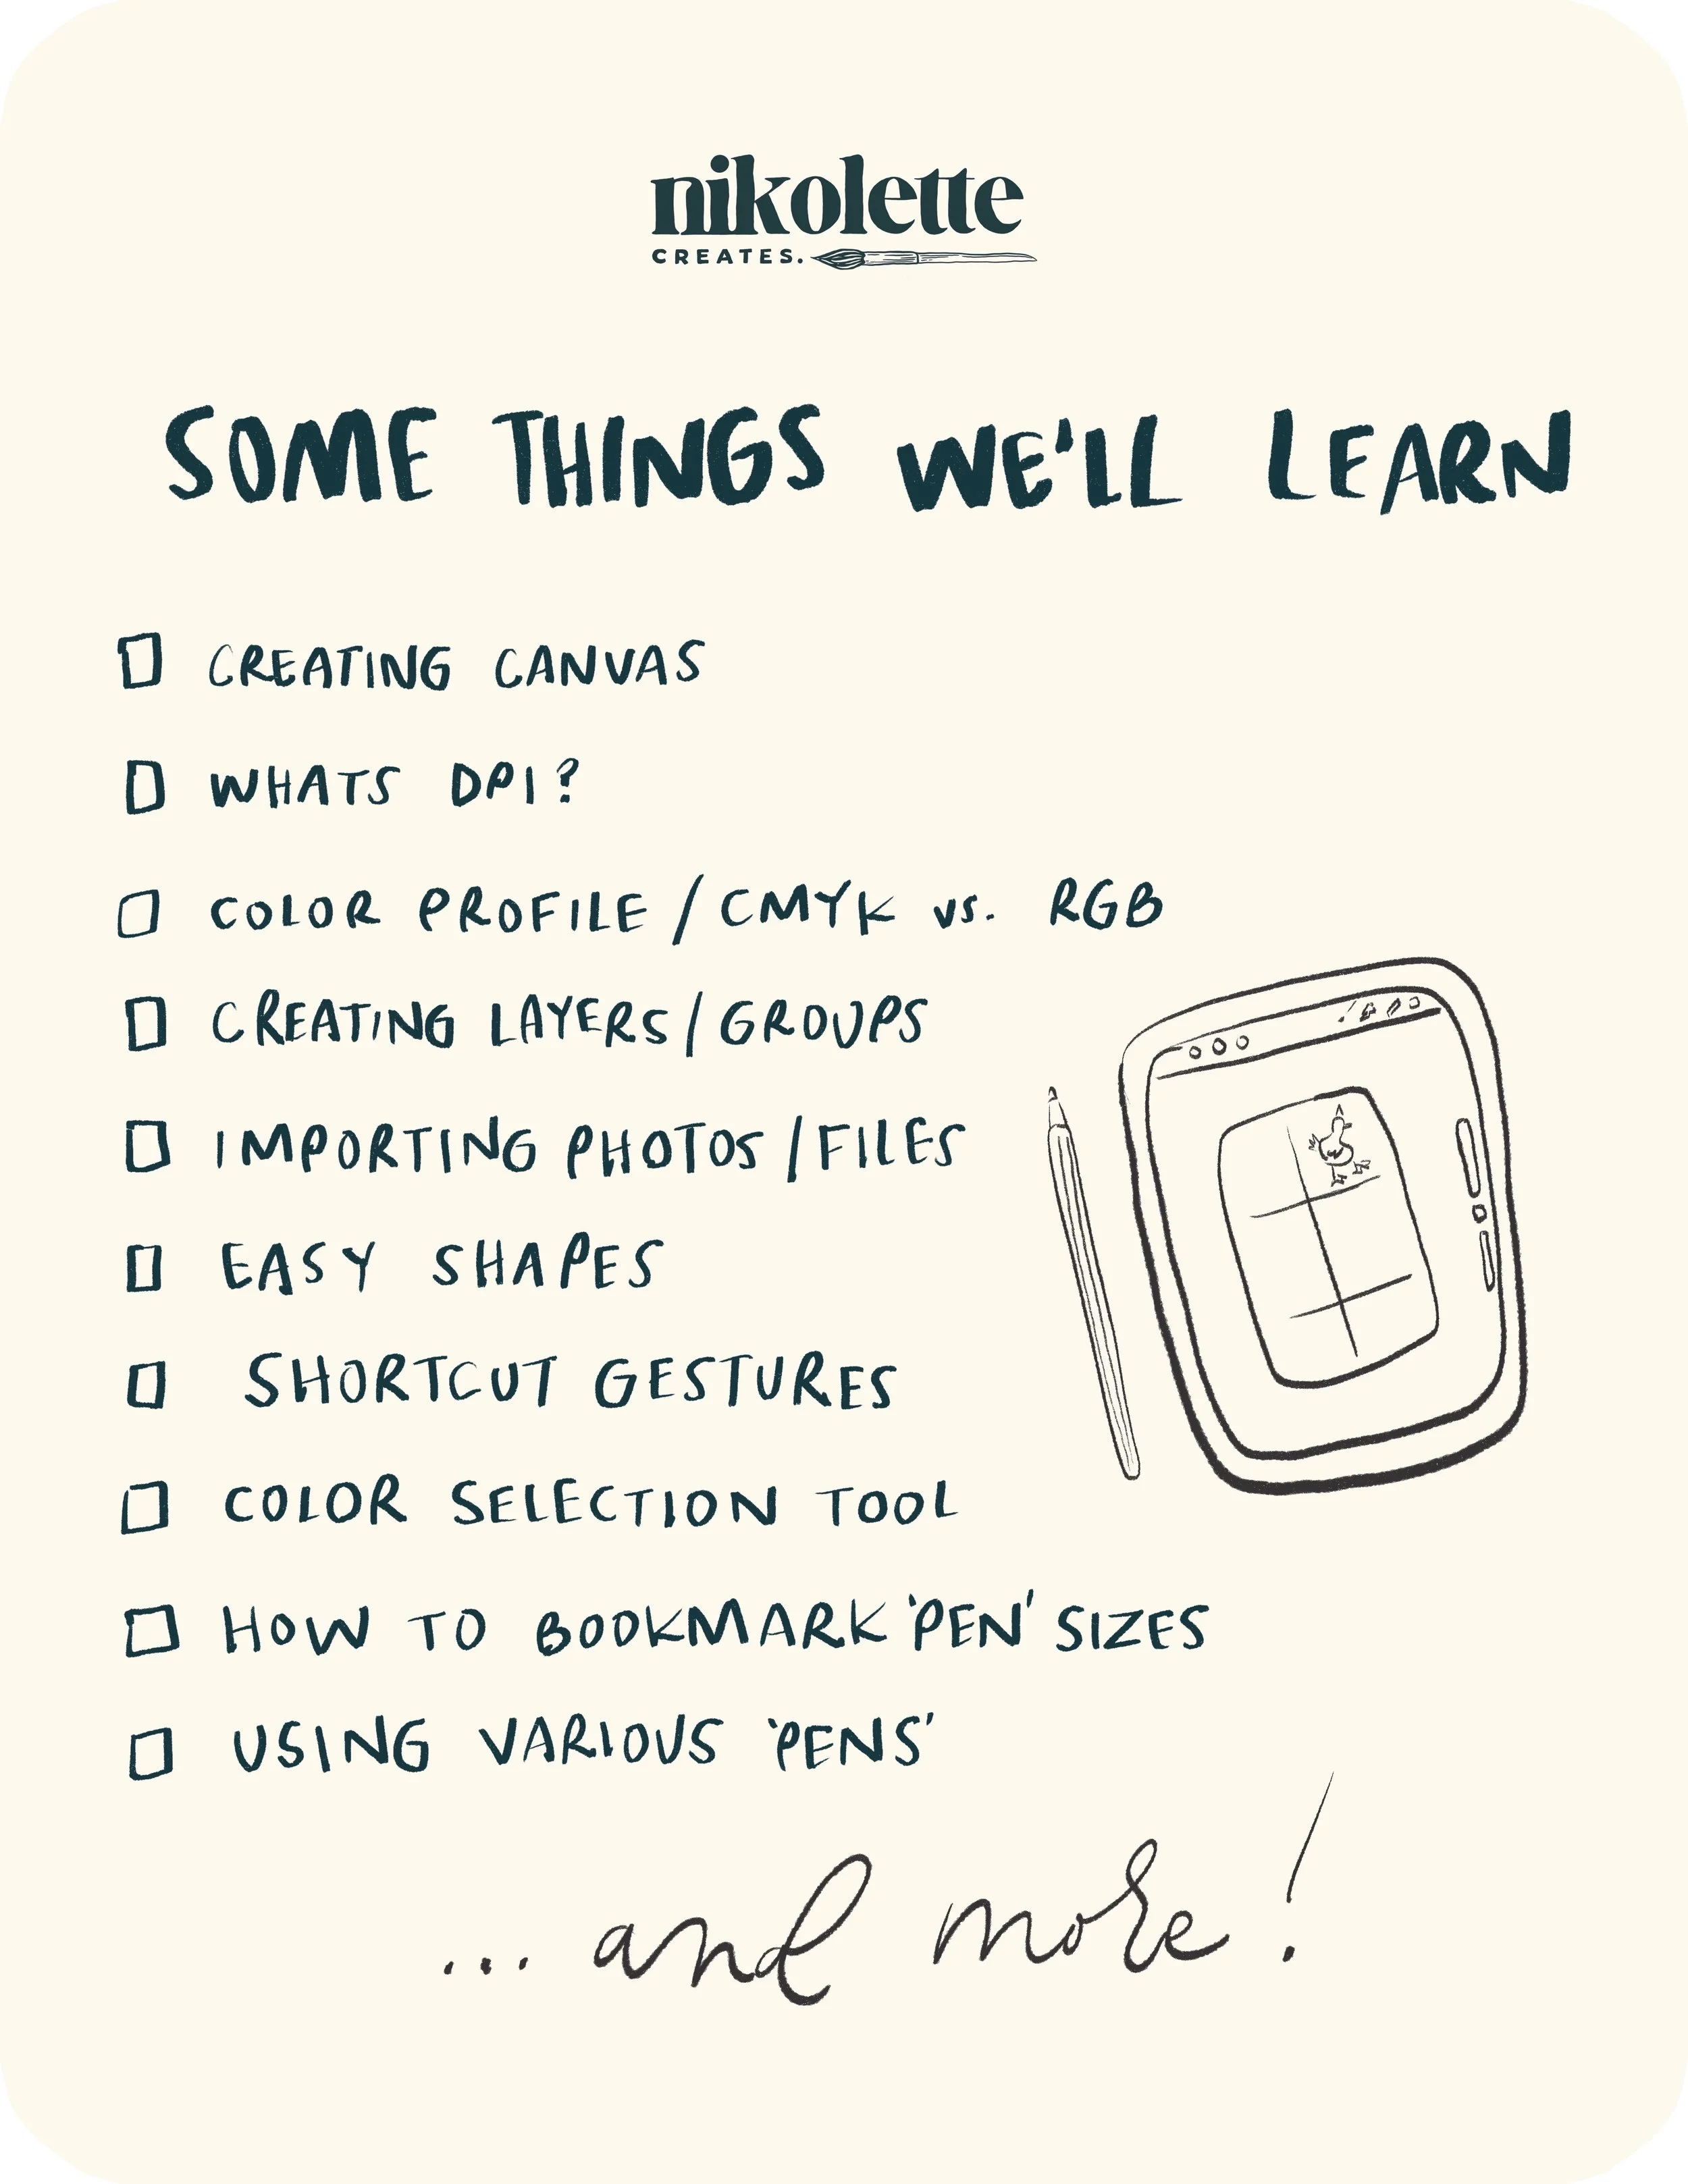 nikolette
CREATES.
SOME THINGS WE'LL LEARN
CREATING CANVAS
WHATS DPI?
COLOR PROFILE / CMYK vs. RGB
CREATING LAYERS / GROUPS
IMPORTING PHOTOS / FILES
EASY SHAPES
SHORTCUT GESTURES
COLOR SELECTION TOOL
HOW TO BOOKMARK 'PEN' SIZES
USING VARIOUS 'PENS'
... and more!